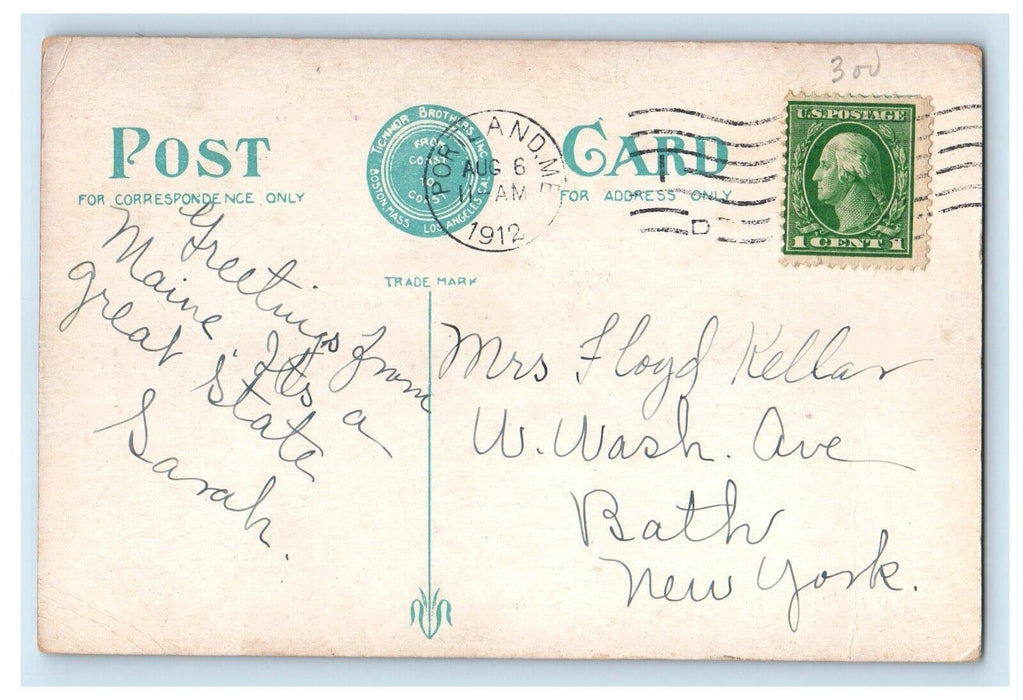 300
POST CARD
FOR CORRESPONDENCE ONLY
FOR ADDRESS ONLY
TICHNOR BROTHERS, INC.
BOSTON, MASS. LOS ANGELES, CAL.
FROM
COAST
TO
COAST
TRADE MARK
PORTLAND, ME
AUG 6
11 AM
1912
D
U.S. POSTAGE
1 CENT 1
Greetings from
Maine. It's a
great state
Sarah.
Mrs Floyd Kellar
W. Wash. Ave
Bath
New York.